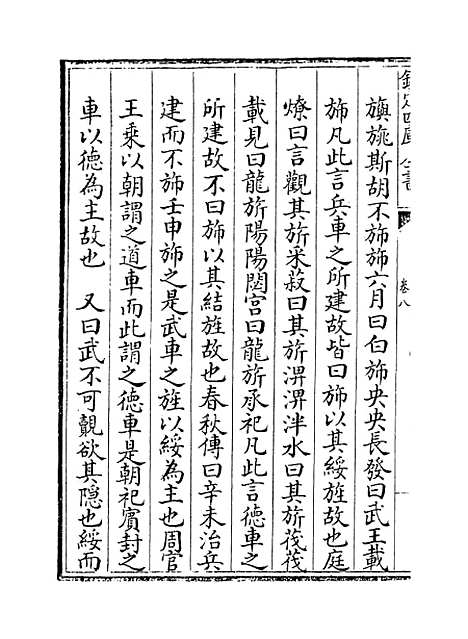 欽定四庫全書
卷八
旟旐斯胡不斾斾六月曰白斾央央長發曰武王載
斾凡此言兵車之所建故皆曰斾以其綏旌故也庭
燎曰言觀其旂采菽曰其旂淠淠泮水曰其旂筏筏
載見曰龍旂陽陽閟宫曰龍旂承祀凡此言德車之
所建故不曰斾以其結旌故也春秋傳曰辛未治兵
建而不斾壬申斾之是武車之旌以綏為主也周官
王乘以朝謂之道車而此謂之德車是朝祀賓封之
車以德為主故也　又曰武不可覿欲其隠也綏而